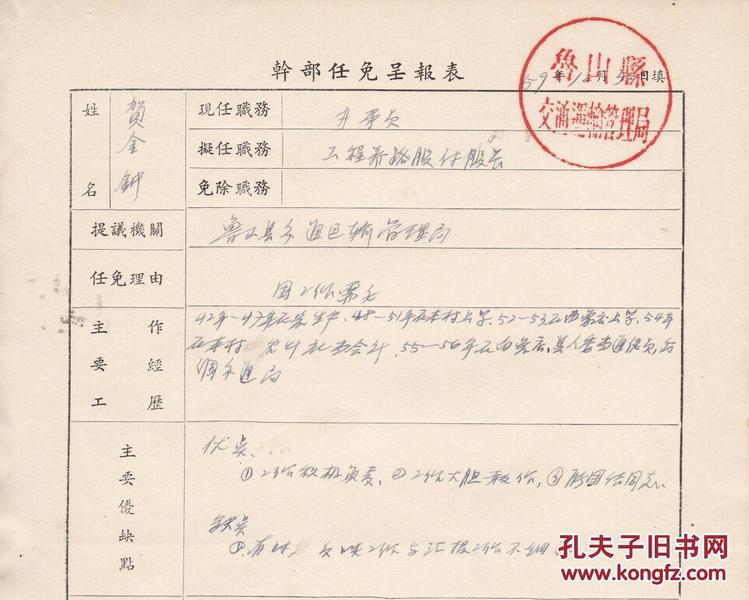 幹部任免呈報表
59年12月 日填
魯山縣
交通運輸管理局
姓名
賀金鈡
現任職務
办事员
擬任職務
工程养路股付股长
免除職務
提議機關
鲁山县交通运输管理局
任免理由
因工作需要
主要工作經歷
42年—47年在家生产、48—51年在本村上学、52—53在 上学、54年
在本村 农业社当会计、55—56年在 店、县人委当通信员、后
调交通局
主要優缺點
优点、
①工作积极负责、②工作大胆 作、③能团结同志
缺点
①有时 反映工作与汇报工作不
孔夫子旧书网
www.kongfz.com